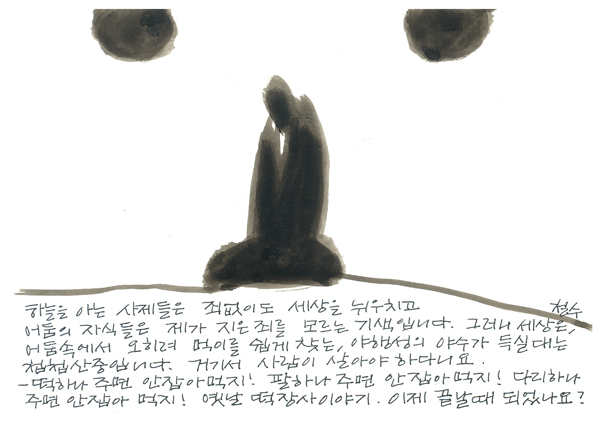 하늘을 아는 사제들은 죄없이도 세상을 뉘우치고
철수
어둠의 자식들은 제가 지은 죄를 모르는 기색입니다. 그러니 세상은,
어둠속에서 오히려 먹이를 쉽게 찾는, 야행성의 야수가 득실대는
첩첩산중입니다. 거기서 사람이 살아야 하다니요.
-떡하나 주면 안잡아먹지! 팔하나 주면 안잡아먹지! 다리하나
주면 안잡아 먹지! 옛날 떡장사이야기. 이제 끝날때 되었나요?